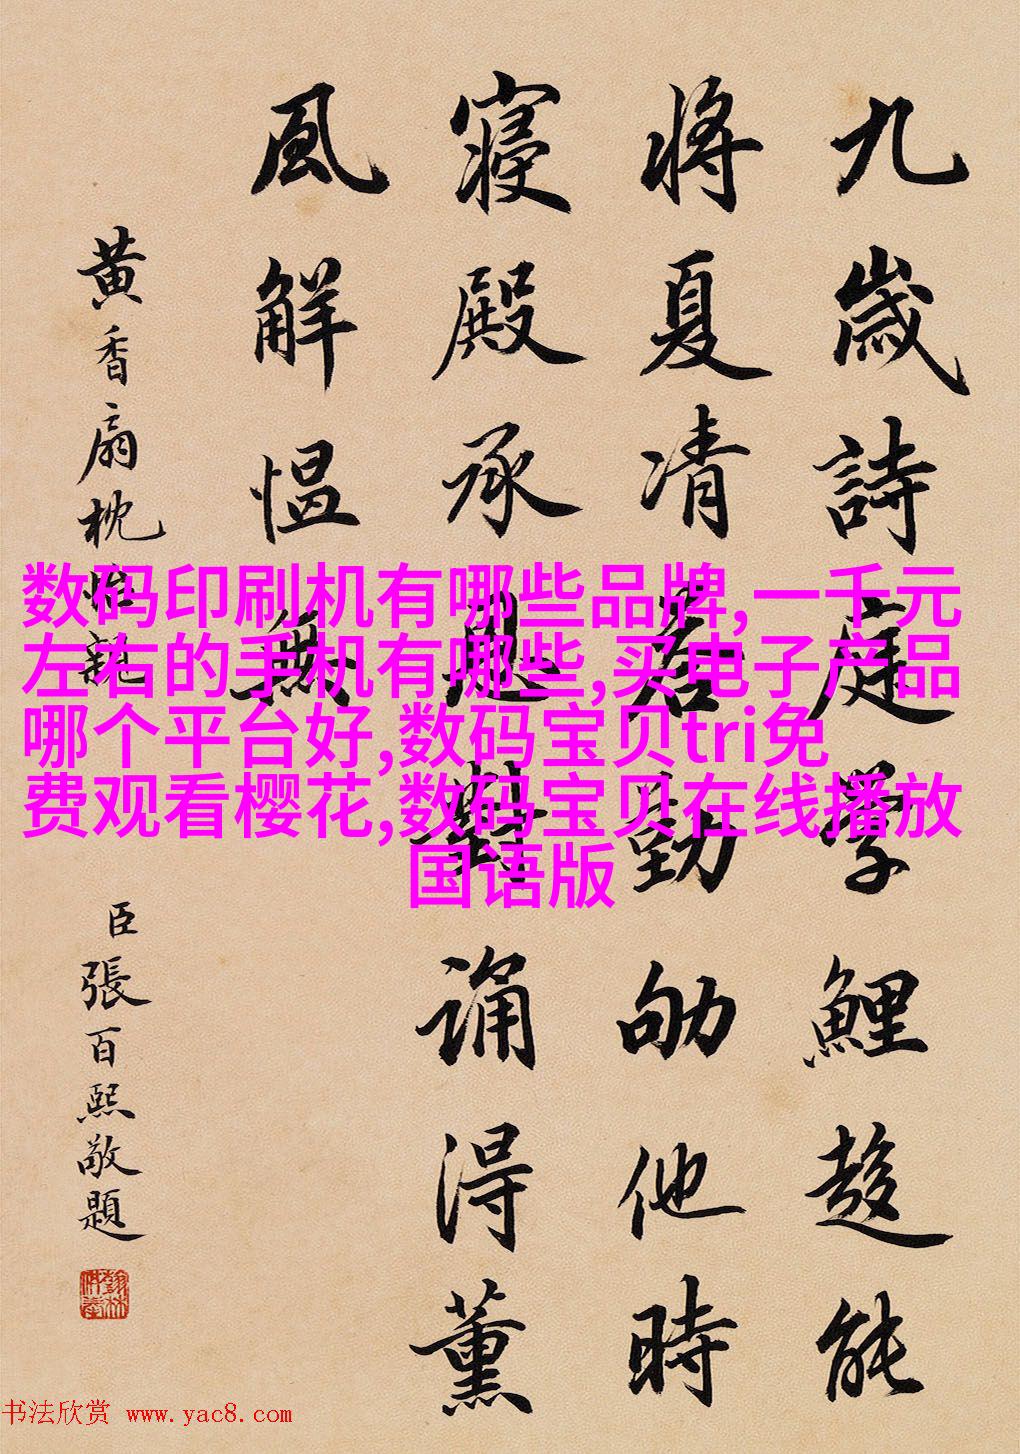 九歲詩庭學鯉趍能
將夏凊勤劬他時
寢殿承恩對誦得薰
風解慍無
黃香扇枕怡親
臣張百熙敬題
数码印刷机有哪些品牌,一千元
左右的手机有哪些,买电子产品
哪个平台好,数码宝贝tri免
费观看樱花,数码宝贝在线播放
国语版
书法欣赏 www.yac8.com